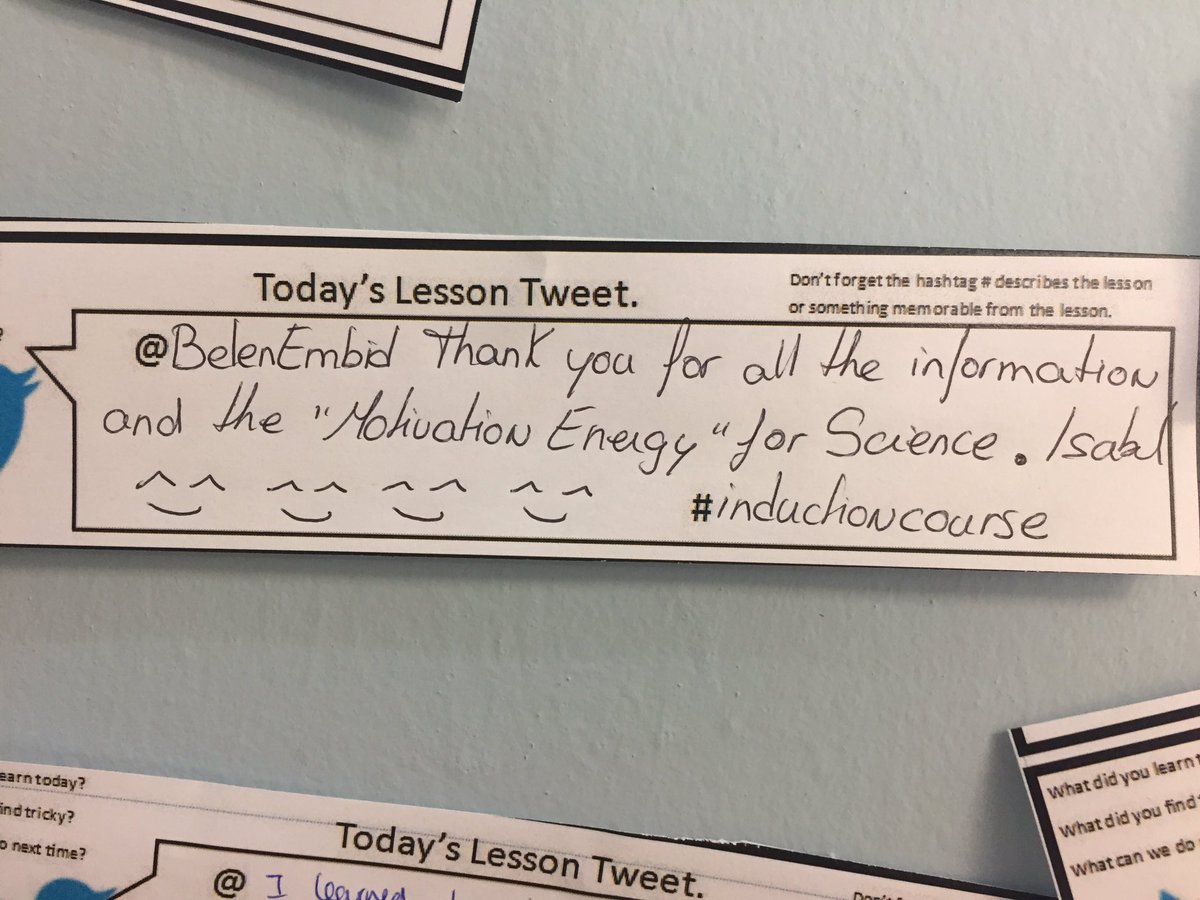 Today's Lesson Tweet.
Don't forget the hashtag # describes the lesson
or something memorable from the lesson.
@BelenEmbid Thank you for all the information
and the "Motivation Energy" for Science. Isabel
#inductioncourse
earn today?
ind tricky?
o next time?
Today's Lesson Tweet.
@ I learned
What did you learn t
What did you find
What can we do